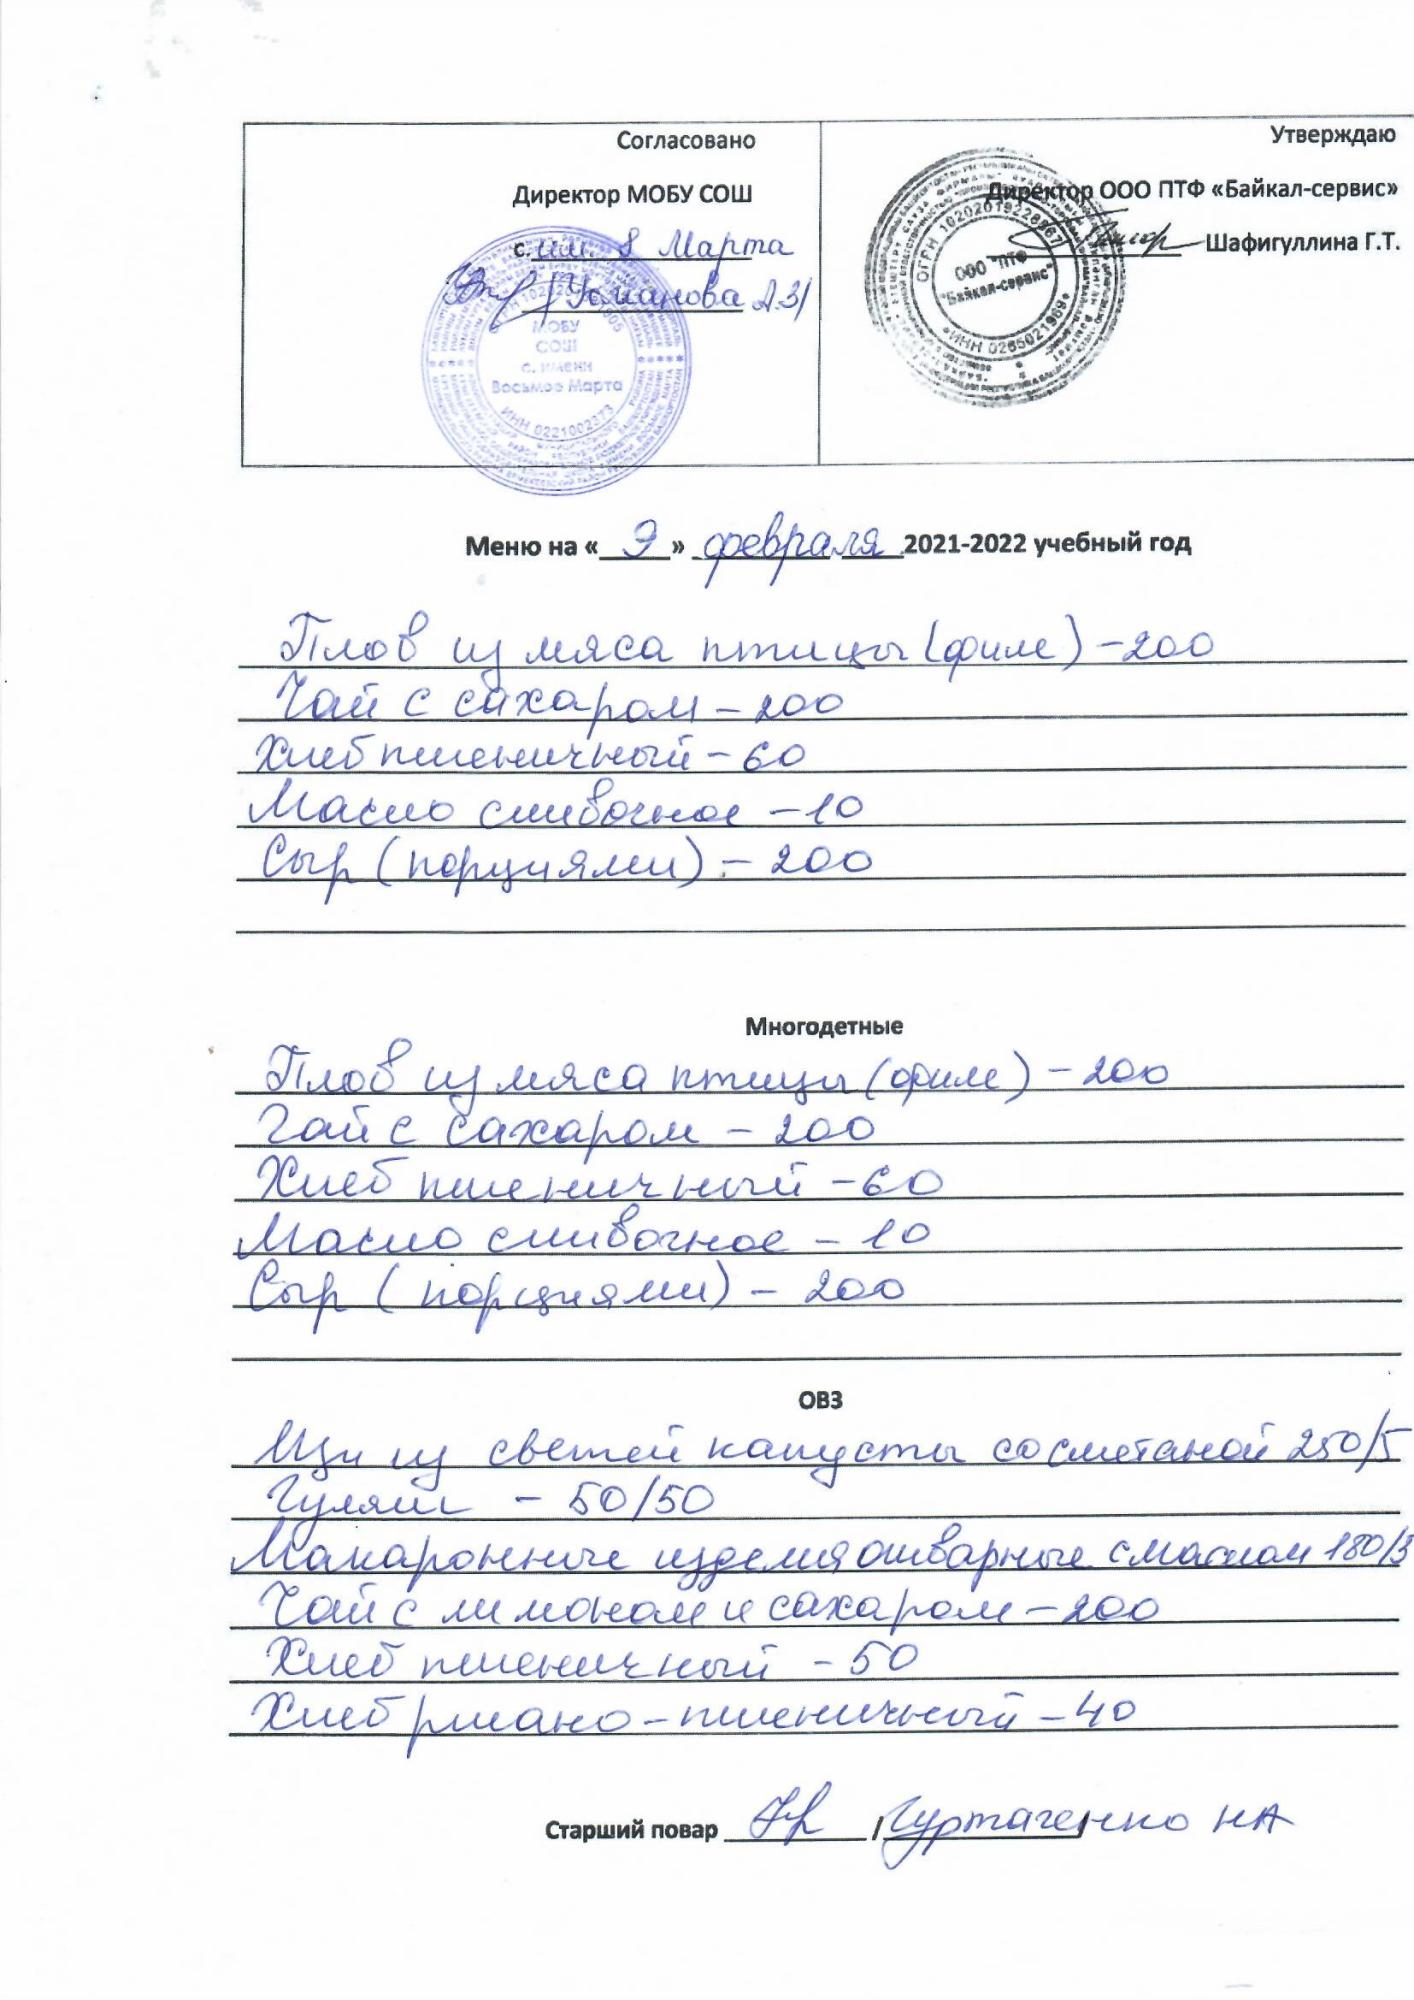 Согласовано
Директор МОБУ СОШ
с. им. 8 Марта
/Усманова А.З/
МОБУ
СОШ
с. имени
Восьмое Марта
ИНН 0221002373
Утверждаю
Директор ООО ПТФ «Байкал-сервис»
Шафигуллина Г.Т.
ОГРН 1020201922896
ООО "ПТФ
"Байкал-сервис"
ИНН 0265021969
Меню на « 9 » февраля 2021-2022 учебный год
Плов из мяса птицы (филе) – 200
Чай с сахаром – 200
Хлеб пшеничный – 60
Масло сливочное – 10
Сыр (порциями) – 200
Многодетные
Плов из мяса птицы (филе) – 200
Чай с сахаром – 200
Хлеб пшеничный – 60
Масло сливочное – 10
Сыр (порциями) – 200
ОВЗ
Щи из свежей капусты со сметаной 250/5
Гуляш – 50/50
Макаронные изделия отварные с маслом 180/3
Чай с лимоном и сахаром – 200
Хлеб пшеничный – 50
Хлеб ржано-пшеничный – 40
Старший повар / НА